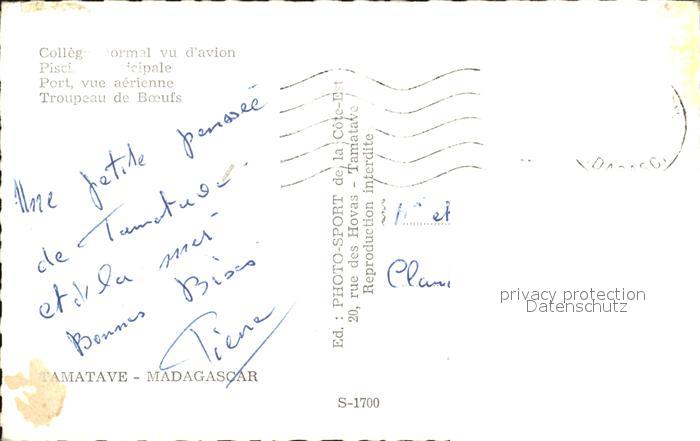 Collèg ormal vu d'avion
Pisci icipale
Port, vue aérienne
Troupeau de Bœufs
Une petite pensée
de Tamatave
et de la mer
Bonnes Bises
Pierre
TAMATAVE - MADAGASCAR
Ed. : PHOTO-SPORT de la Côte-Est
20, rue des Hovas - Tamatave
Reproduction interdite
S-1700
et
privacy protection
Datenschutz